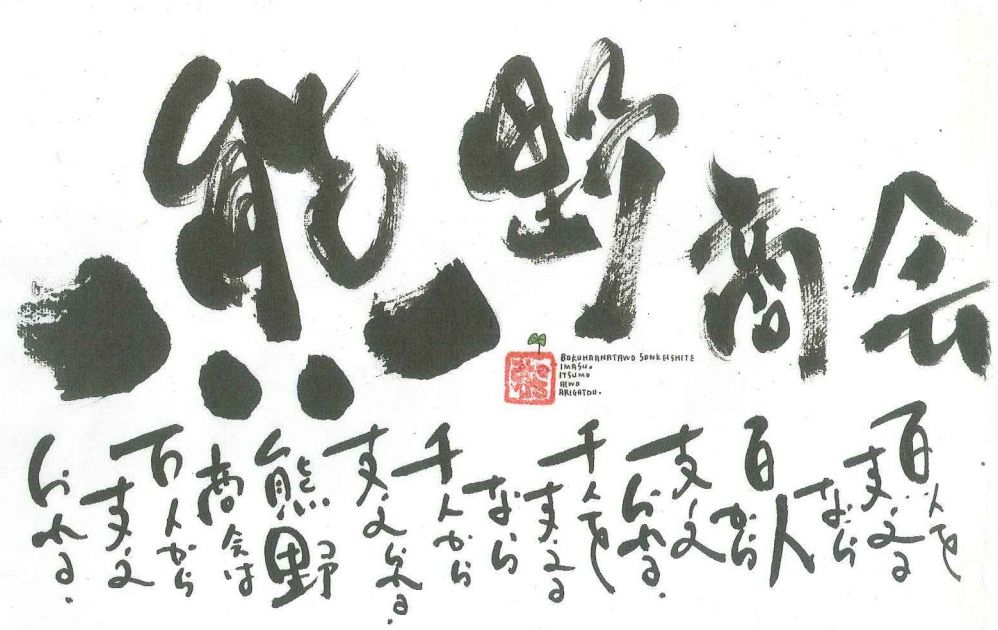 熊野商会
BOKUHAANATAWO SONKEISHITE
IMASU。
ITSUMO
AIWO
ARIGATOU.
百人を
支える
なら
百人から
支え
られる。
千人を
支える
なら
千人から
支えられる。
熊野
商会は
万人から
支え
られる。